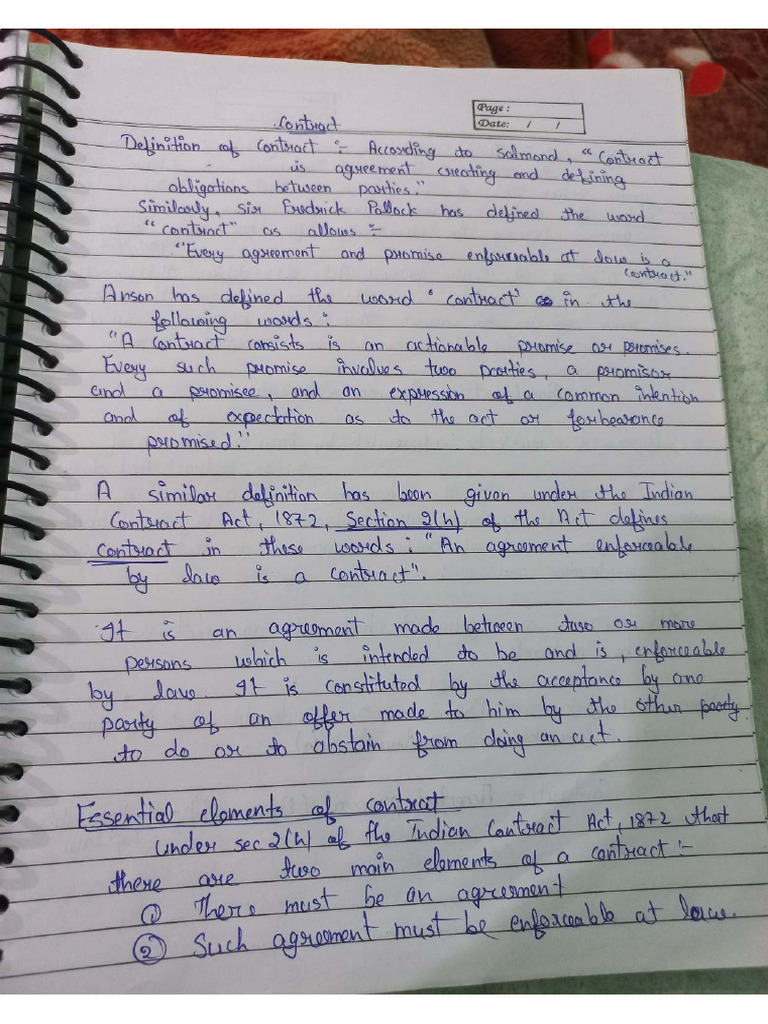 Page :
Date: / /
Contract
Definition of Contract :- According to Salmond, "Contract
is agreement creating and defining
obligations between parties."
Similarly, sir Fredrick Pollock has defined the word
"contract" as allows :-
"Every agreement and promise enforceable at law is a
contract."
Anson has defined the word 'contract' in the
following words :
"A contract consists is an actionable promise or promises.
Every such promise involves two parties, a promisor
and a promisee, and an expression of a common intention
and of expectation as to the act or forbearance
promised."
A similar definition has been given under the Indian
Contract Act, 1872, Section 2(h) of the Act defines
contract in these words : "An agreement enforceable
by law is a contract".
It is an agreement made between two or more
persons which is intended to be and is, enforceable
by law. It is constituted by the acceptance by one
party of an offer made to him by the other party
to do or to abstain from doing an act.
Essential elements of contrat
under sec 2(h) of the Indian Contract Act, 1872 that
there are two main elements of a contract :-
① There must be an agreement
② Such agreement must be enforceable at law.